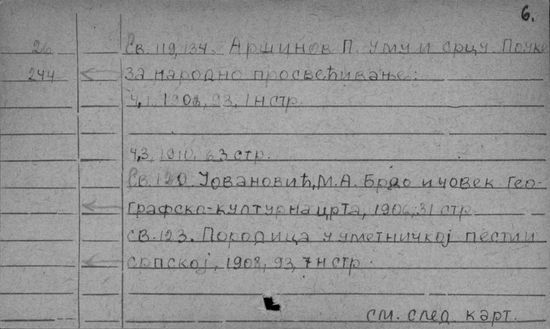 6.
26 Св. 119, 134. Аршинов П. Уму и срцу. Поуке
244 за народно просвећивање:
ч,1, 1908, 93, 1 н стр.
ч,3, 1910. 83 стр.
Св. 120 Јовановић, М. А. Брдо и човек Гео-
графско-културна црта, 1906, 31 стр
св. 123. Породица у уметничкој песми
српској, 1908, 93, 7 н стр.
см. след карт.